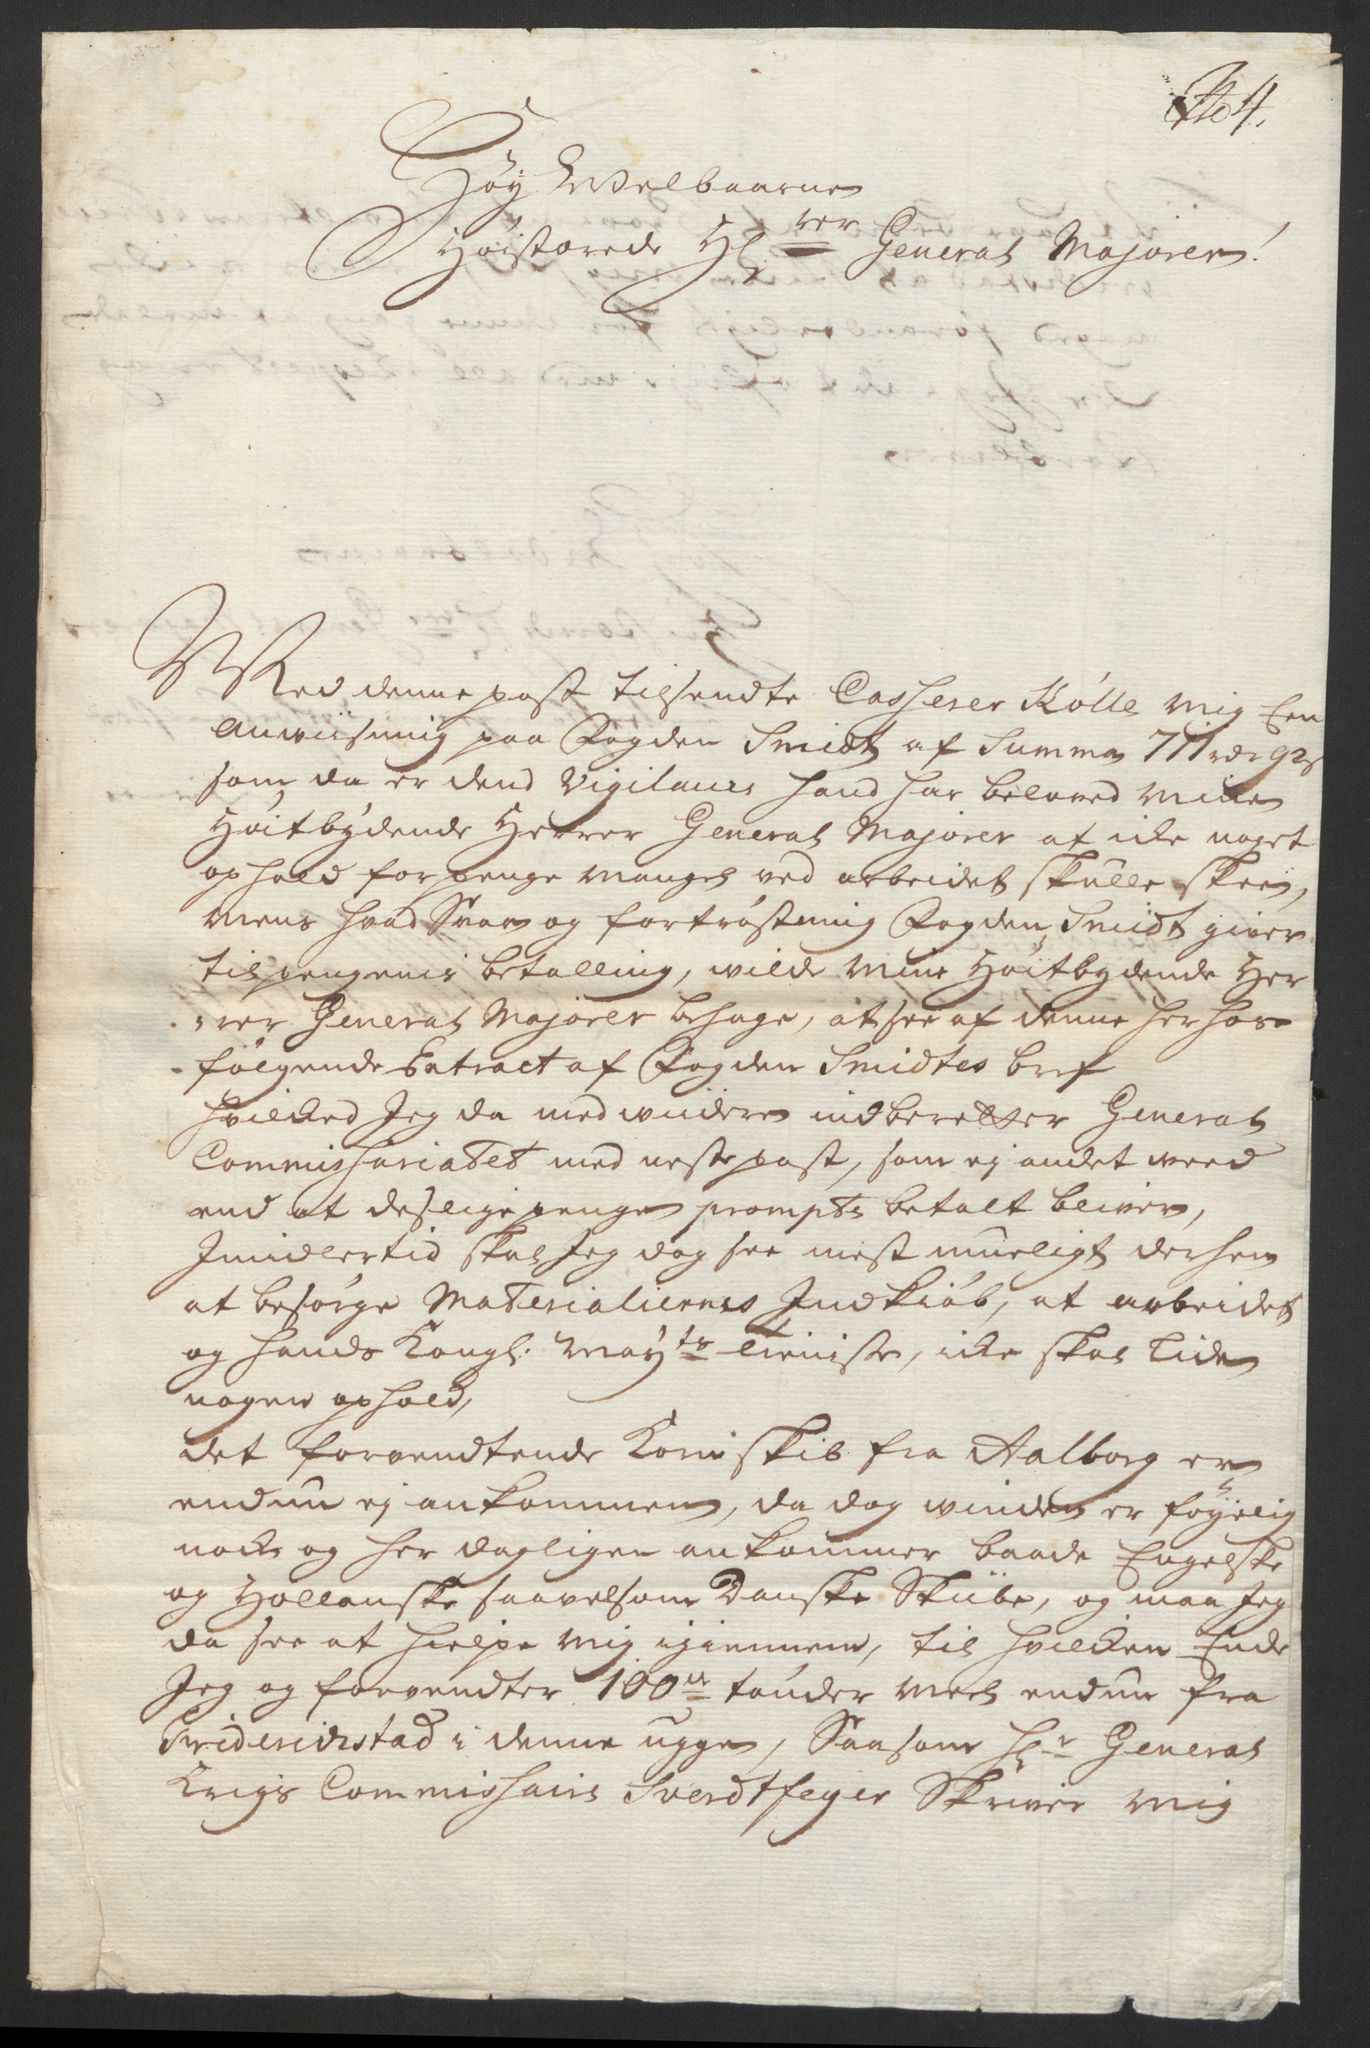 No 4.
Høy Edelbaarne
Høistærede Hl: rer General Majorer!
Med denne post tilsendte Casserer Kølle mig Een
Anwiisning paa Fogden Smidt af Summa 711 rdr 92 s
som da er dend Vigilance hand har beloved mine
Høitbydende Herrer General Majorer at icke noget
ophold for penge mangel ved arbeidet skulle skee,
mens hvad Svar og fortrøstning Fogden Smidt giver
til pengenis betalling, wilde mine Høitbydende Her
rer General Majorer behage, at see af denne herhos
følgende Extract af Fogden Smidtes bref
hvilcked Jeg da med widere indberetter General
Commissariatet med neste post, som ej andet weed
end at deslige penge prompte betalt bliver,
Imidlertid skal Jeg dog see mest mueligt derhen
at besørge Materialiernes Indkiøb, at arbeidet
og hands Kongl: May ts tieniste, icke skal lide
nogen ophold,
det forvendtende Korn skib fra Aalborg er
endnu ej ankommen, da dog winden er føyelig
nock og her dagligen ankommer baade Engelske
og Hollanske saavelsom Danske Skibe, og maa Jeg
da see at hielpe mig igiennem, til hvilcken Ende
Jeg og forvendter 100 de tønder meel endnu fra
Friderichstad i denne uge, Saasom Hr General
Krigs Commissair Sverdtfeger Skriver mig